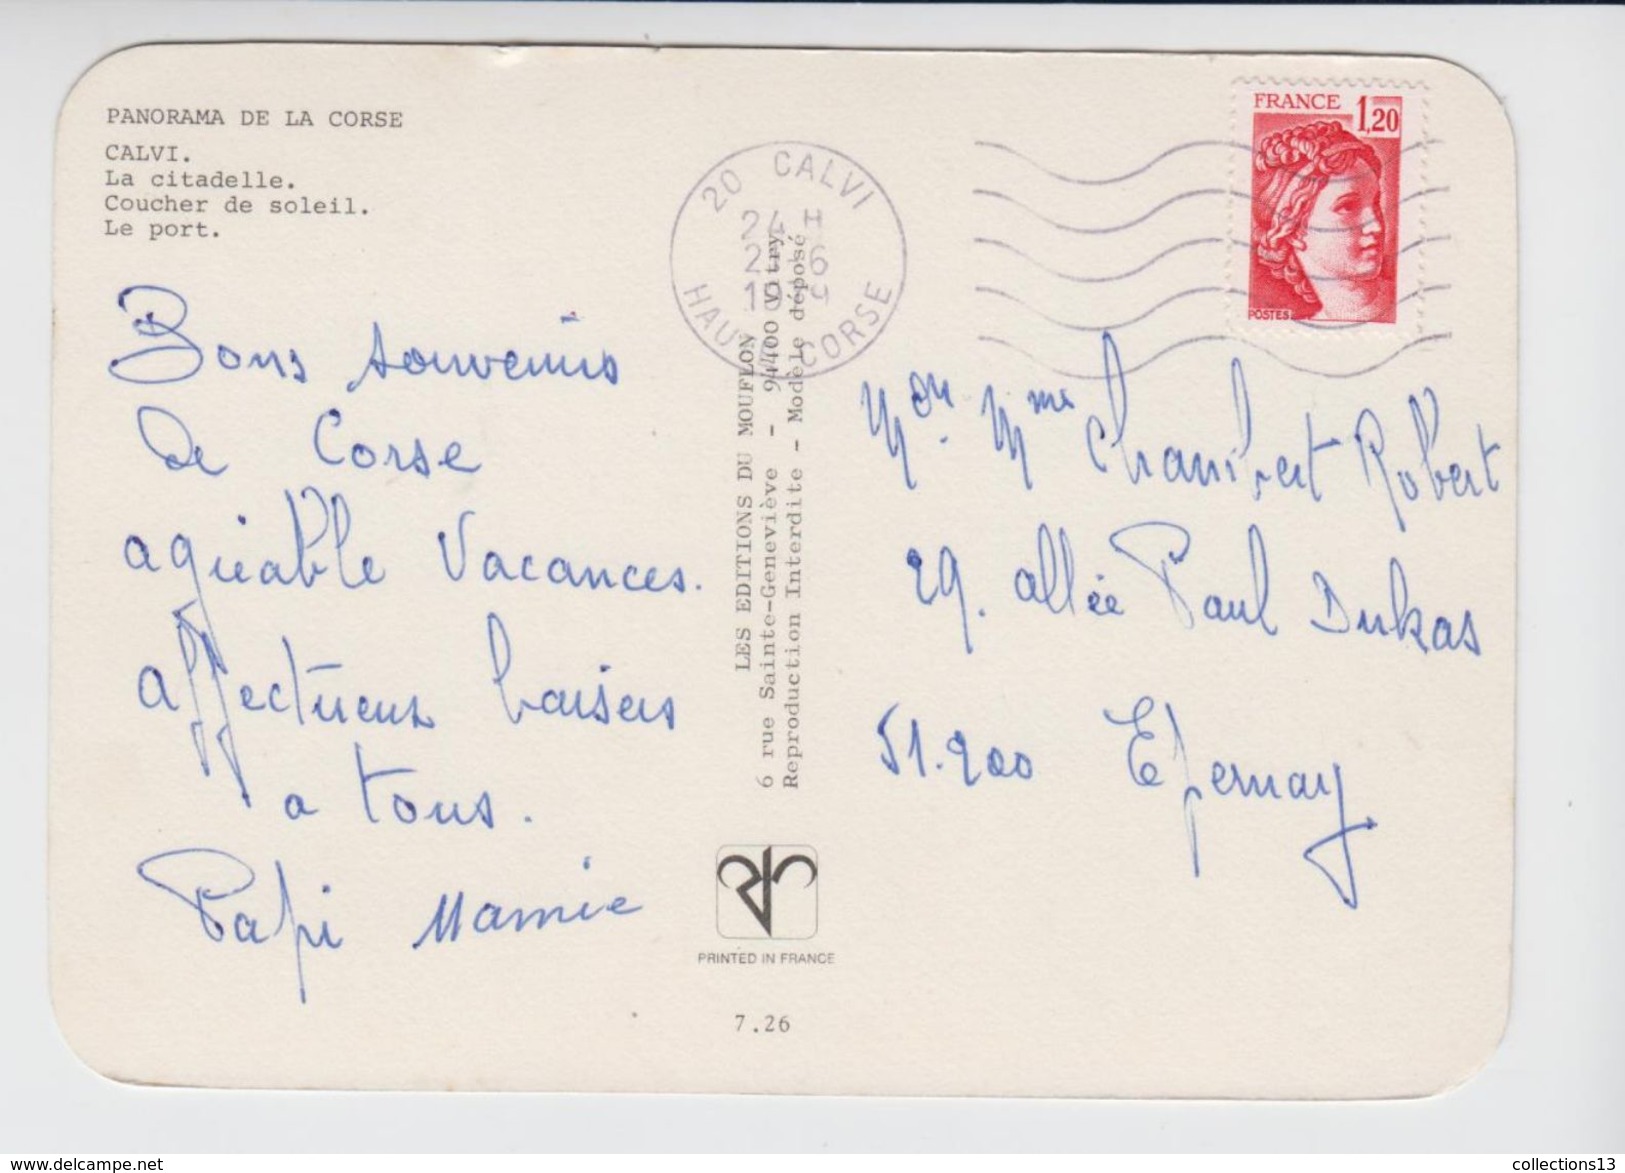 PANORAMA DE LA CORSE
CALVI.
La citadelle.
Coucher de soleil.
Le port.
Bons souvenirs
de Corse
agréable Vacances.
affectueux baisers
a tous.
Papi Mamie
LES EDITIONS DU MOUFLON
6 rue Sainte-Geneviève - 94400 Vitry
Reproduction Interdite - Modèle déposé
PRINTED IN FRANCE
7.26
20 CALVI
24 H
6
HAUTE CORSE
FRANCE 1,20
POSTES
Mon. Mme Chambert Robert
29. allée Paul Dukas
51.200 Epernay
collections13
www.delcampe.net